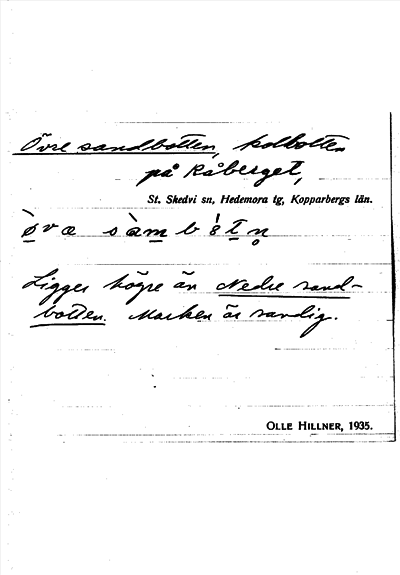 Övre sandbotten, kolbotten
på Råberget,
St. Skedvi sn, Hedemora tg, Kopparbergs län.
Ligger högre än Nedre sand-
botten. Marken är sandig.
OLLE HILLNER, 1935.